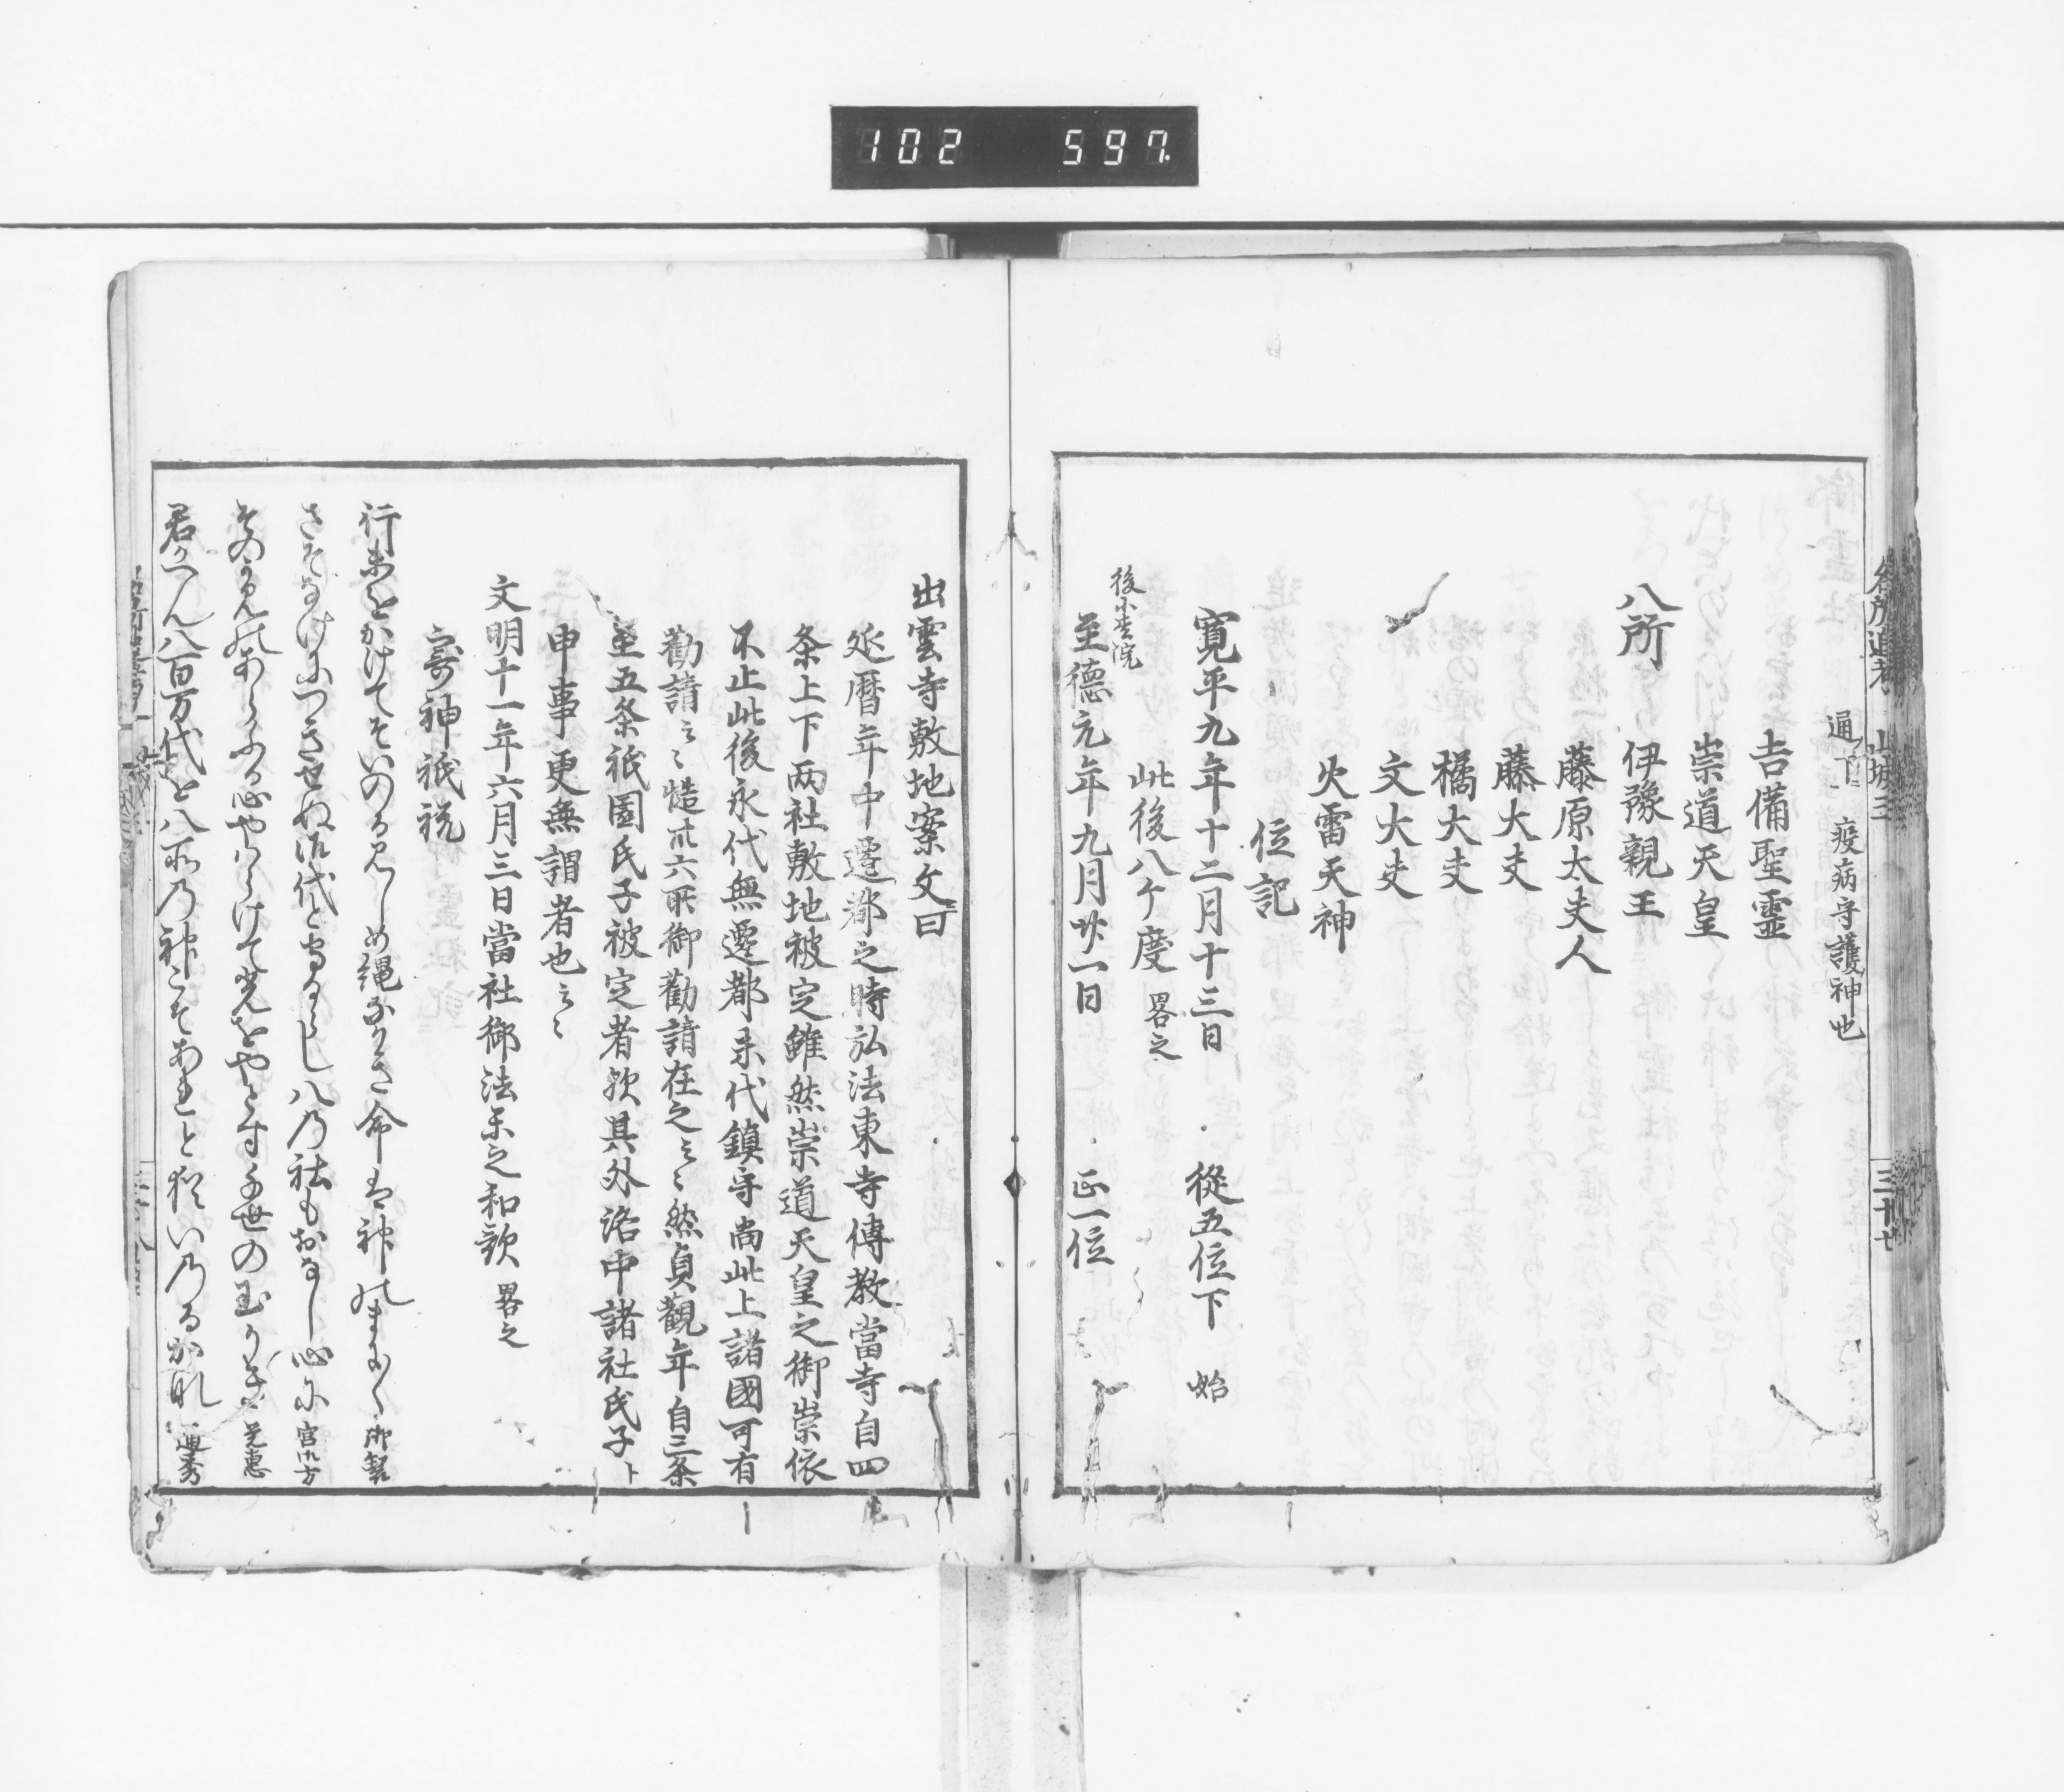 102 597
名所追考 山城三 三十七
通下 疫病守護神也
吉備聖霊
崇道天皇
八所 伊豫親王
藤原太夫人
藤大夫
橘大夫
文大夫
火雷天神
位記
寛平九年十二月十三日 従五位下 始
此後八ケ度 畧之
後小松院
至徳元年九月廿一日 正一位
出雲寺敷地案文曰
延暦年中遷都之時弘法東寺傳教當寺自四
条上下両社敷地被定雖然崇道天皇之御崇依
不止此後永代無遷都末代鎮守尚此上諸國可有
勧請云々 六所御勧請在之云々然貞觀年自三条
至五条祇園氏子被定者欤其外洛中諸社氏子ト
申事更無謂者也云々
文明十一年六月三日當社御法楽之和歌 畧之
寄神祇祝
行末をかけてそいのるみしめ縄なかき命は神のまに／＼ 御製
八乃社もおなし心に 宮御方
千世の玉かき
君かへん八百万代と八所乃神こそあれと猶いのるかな 通秀